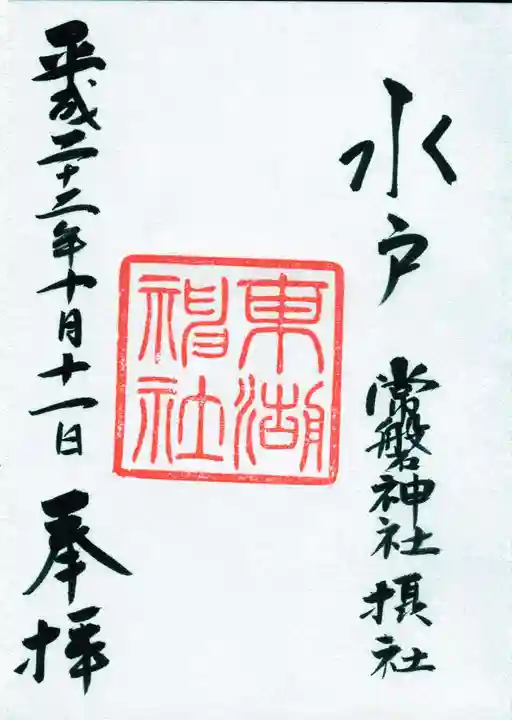 水戸 常磐神社 摂社
東湖
神社
平成二十三年十月十一日 奉拝